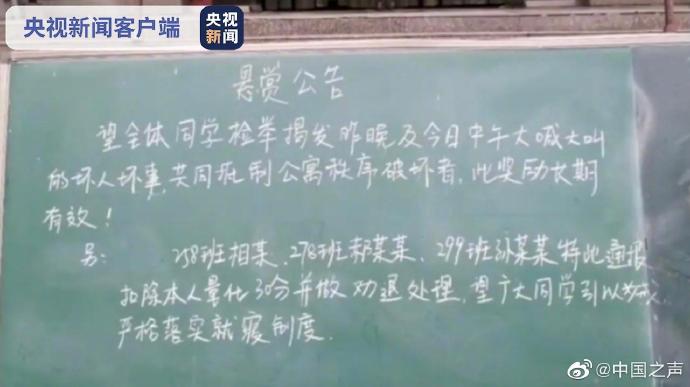 央视新闻客户端
央视
新闻
悬赏公告
望全体同学检举揭发昨晚及今日中午大喊大叫
的坏人坏事,共同抵制公寓秩序破坏者,此奖励长期
有效!
另: 258班相某、278班郝某某、299班孙某某特此通报
扣除本人量化30分并做劝退处理,望广大同学引以为戒,
严格落实就寝制度.
@中国之声